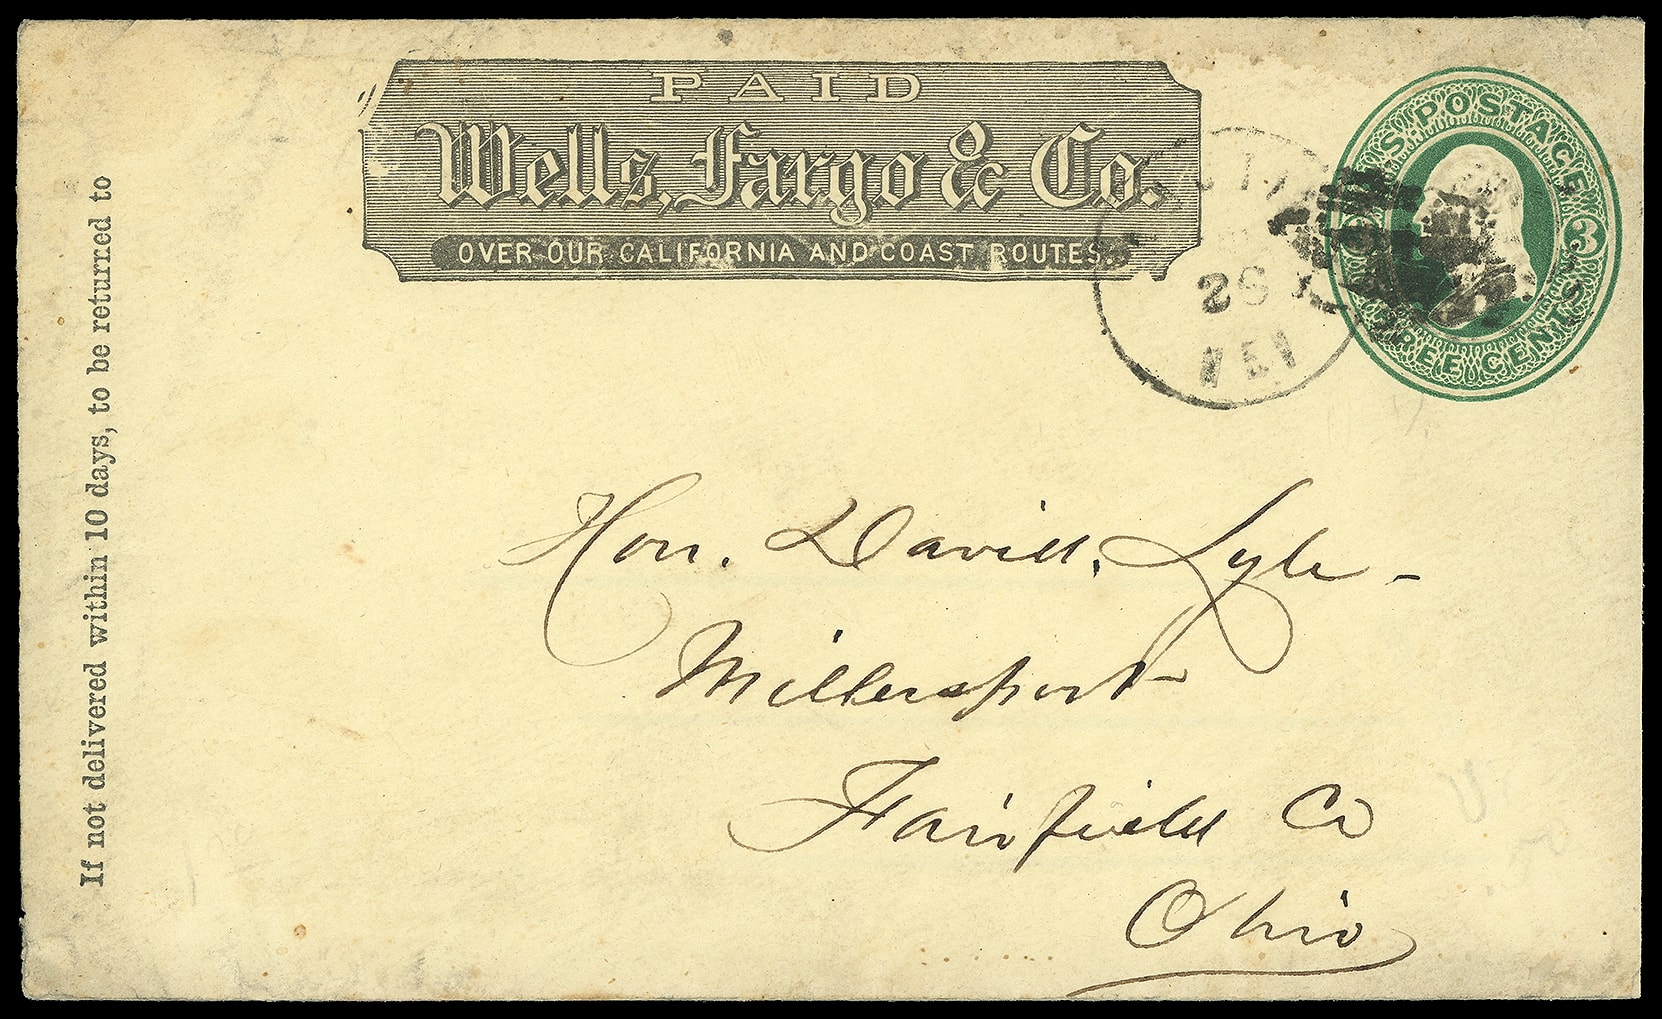 PAID
Wells, Fargo & Co.
OVER OUR CALIFORNIA AND COAST ROUTES.
U.S. POSTAGE
3
THREE CENTS
If not delivered within 10 days, to be returned to
Hon. David Lyle -
Millersport
Fairfield Co
Ohio